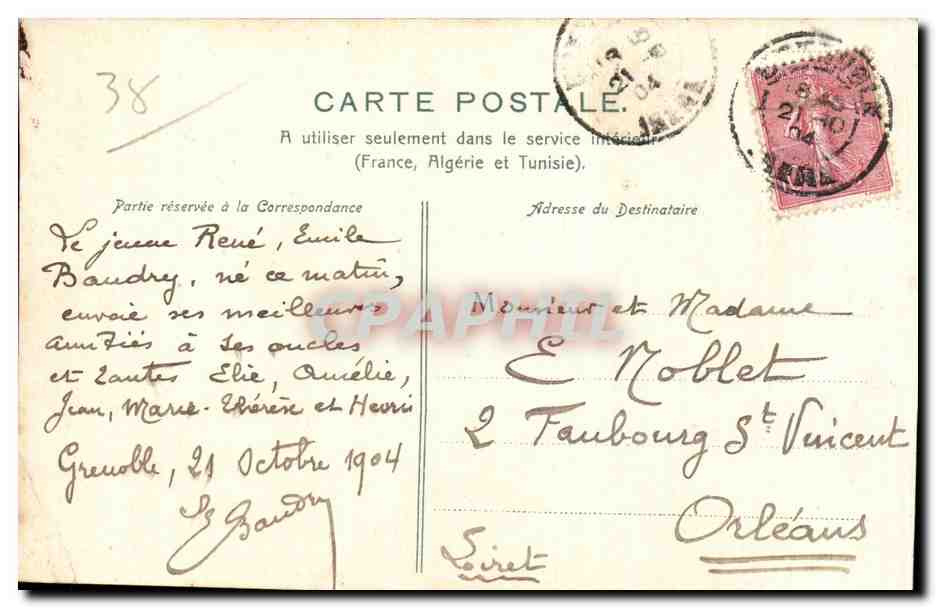 38
CARTE POSTALE.
A utiliser seulement dans le service intérieur
(France, Algérie et Tunisie).
Partie réservée à la Correspondance
Le jeune René, Emile
Baudry, né ce matin,
envoie ses meilleures
amitiés à ses oncles
et tantes Elie, Amélie,
Jean, Marie-Thérèse et Henri
Grenoble, 21 Octobre 1904
E Baudry
Adresse du Destinataire
Monsieur et Madame
E Noblet
2 Faubourg St Vincent
Orléans
Loiret
21
04
ISERE
21 10
04
ISERE
CPAPHIL